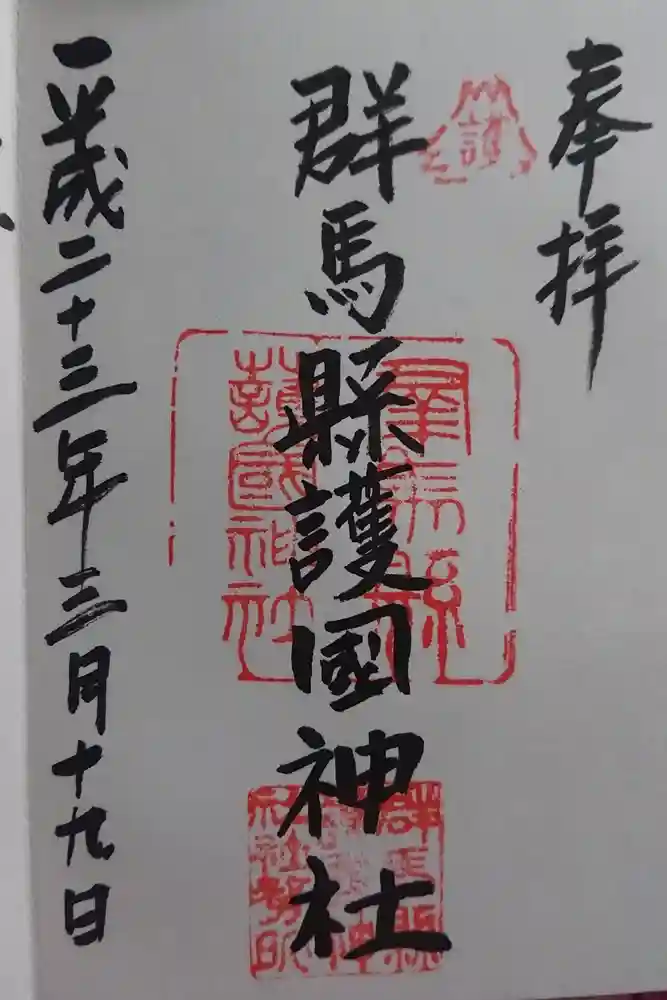 奉拝
群馬縣護國神社
群馬縣護國神社
群馬縣護國神社社務所
平成二十三年三月十九日